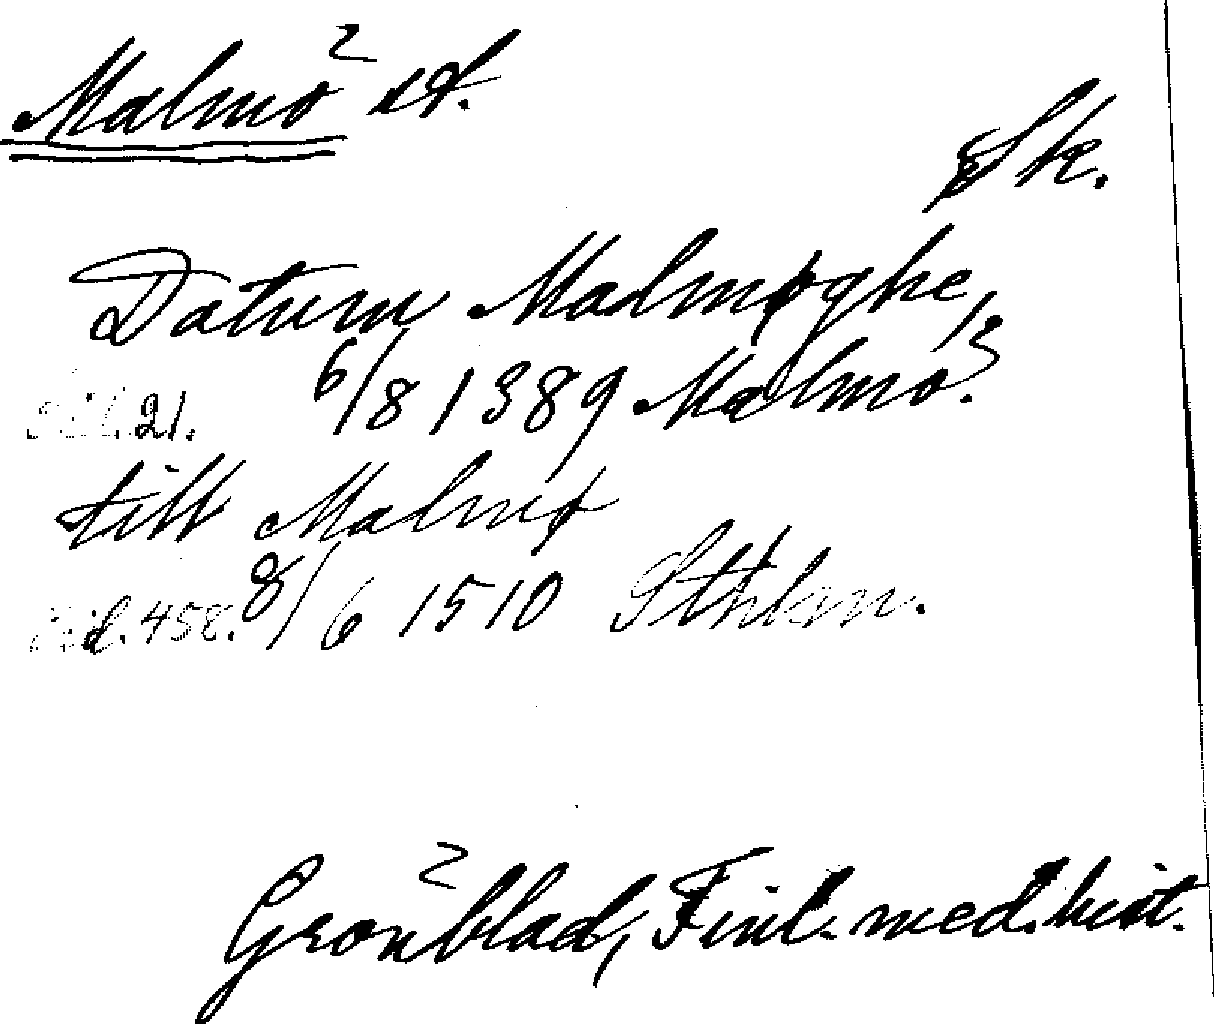 Malmö st.
Sk.
Datum Malmøghe,
6/8 1389 Malmö.
21.
till Malmø
sid. 458. 8/6 1510 Sthlm.
Grönblad, Finl. med. hist.